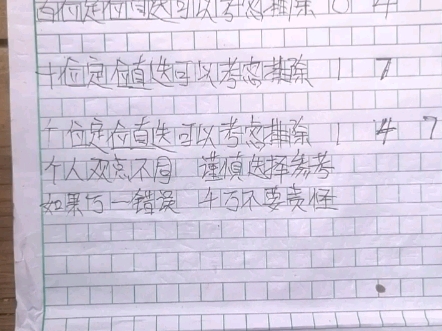 百位定位直选可以考虑排除 0 4
十位定位直选可以考虑排除 1 7
个位定位直选可以考虑排除 1 4 7
个人观点不同 谨慎选择参考
如果万一错误 千万不要责怪